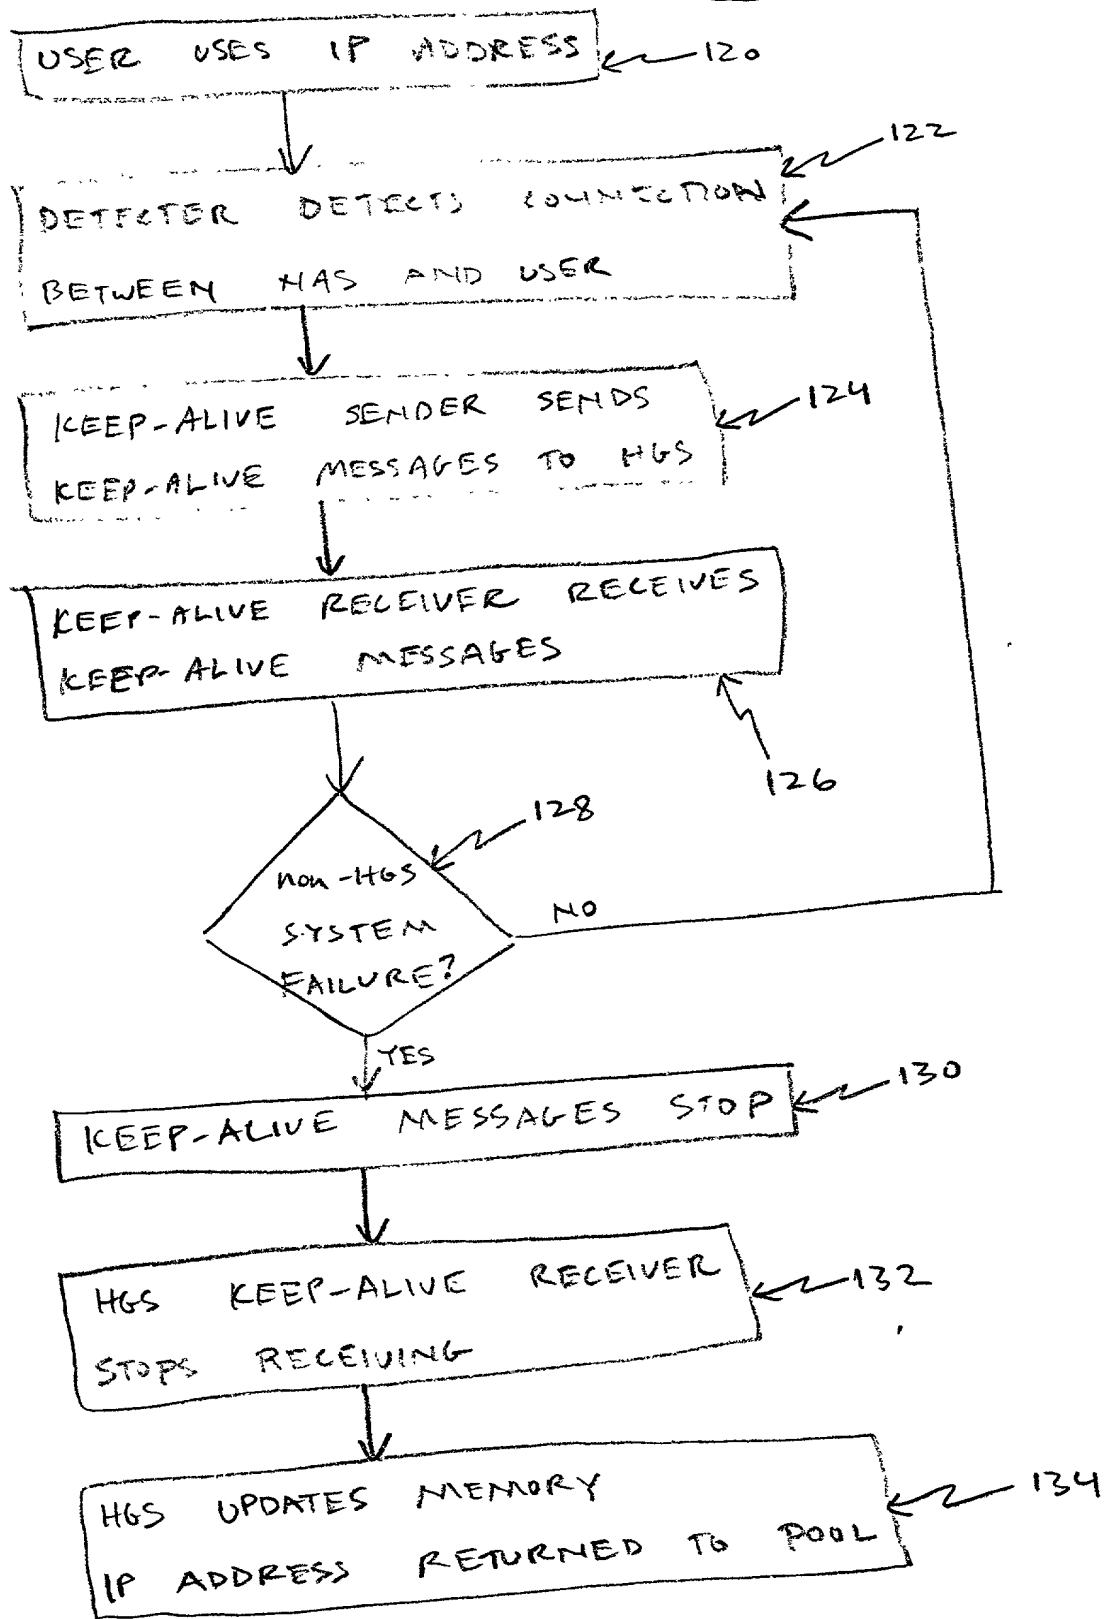 USER USES IP ADDRESS
120
122
DETECTER DETECTS CONNECTION
BETWEEN NAS AND USER
124
KEEP-ALIVE SENDER SENDS
KEEP-ALIVE MESSAGES TO HGS
KEEP-ALIVE RECEIVER RECEIVES
KEEP-ALIVE MESSAGES
126
128
non-HGS
SYSTEM
FAILURE?
NO
YES
130
KEEP-ALIVE MESSAGES STOP
HGS KEEP-ALIVE RECEIVER
132
STOPS RECEIVING
HGS UPDATES MEMORY
134
IP ADDRESS RETURNED TO POOL